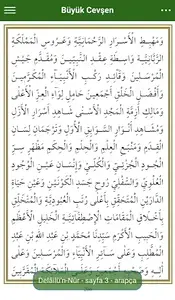 Büyük Cevşen
وَمَهْبِطِ الْأَسْرَارِ الرَّحْمَانِيَّةِ وَعَرُوسِ الْمَمْلَكَةِ
الرَّبَّانِيَّةِ وَاسِطَةِ عِقْدِ النَّبِيِّينَ وَمُقَدَّمِ جَيْشِ
الْمُرْسَلِينَ وَقَائِدِ رَكْبِ الْأَنْبِيَاءِ الْمُكَرَّمِينَ
وَأَفْضَلِ الْخَلْقِ أَجْمَعِينَ حَامِلِ لِوَاءِ الْعِزِّ الْأَعْلَى
وَمَالِكِ أَزِمَّةِ الْمَجْدِ الْأَسْنَى شَاهِدِ أَسْرَارِ الْأَزَلِ
وَمُشَاهِدِ أَنْوَارِ السَّوَابِقِ الْأُوَلِ وَتَرْجُمَانِ لِسَانِ
الْقِدَمِ وَمَنْبَعِ الْعِلْمِ وَالْحِلْمِ وَالْحِكَمِ مَظْهَرِ سِرِّ
الْجُودِ الْجُزْئِيِّ وَالْكُلِّيِّ وَإِنْسَانِ عَيْنِ الْوُجُودِ
الْعُلْوِيِّ وَالسُّفْلِيِّ رُوحِ جَسَدِ الْكَوْنَيْنِ وَعَيْنِ حَيَاةِ
الدَّارَيْنِ الْمُتَحَقِّقِ بِأَعْلَى رُتَبِ الْعُبُودِيَّةِ وَالْمُتَخَلِّقِ
بِأَخْلَاقِ الْمَقَامَاتِ الْاِصْطِفَائِيَّةِ الْخَلِيلِ الْأَعْظَمِ
وَالْحَبِيبِ الْأَكْرَمِ سَيِّدِنَا مُحَمَّدِ بْنِ عَبْدِ اللهِ بْنِ عَبْدِ
الْمُطَّلِبِ وَعَلَى سَائِرِ الْأَنْبِيَاءِ وَالْمُرْسَلِينَ وَعَلَى
Delâilü'n-Nûr - sayfa 3 - arapça